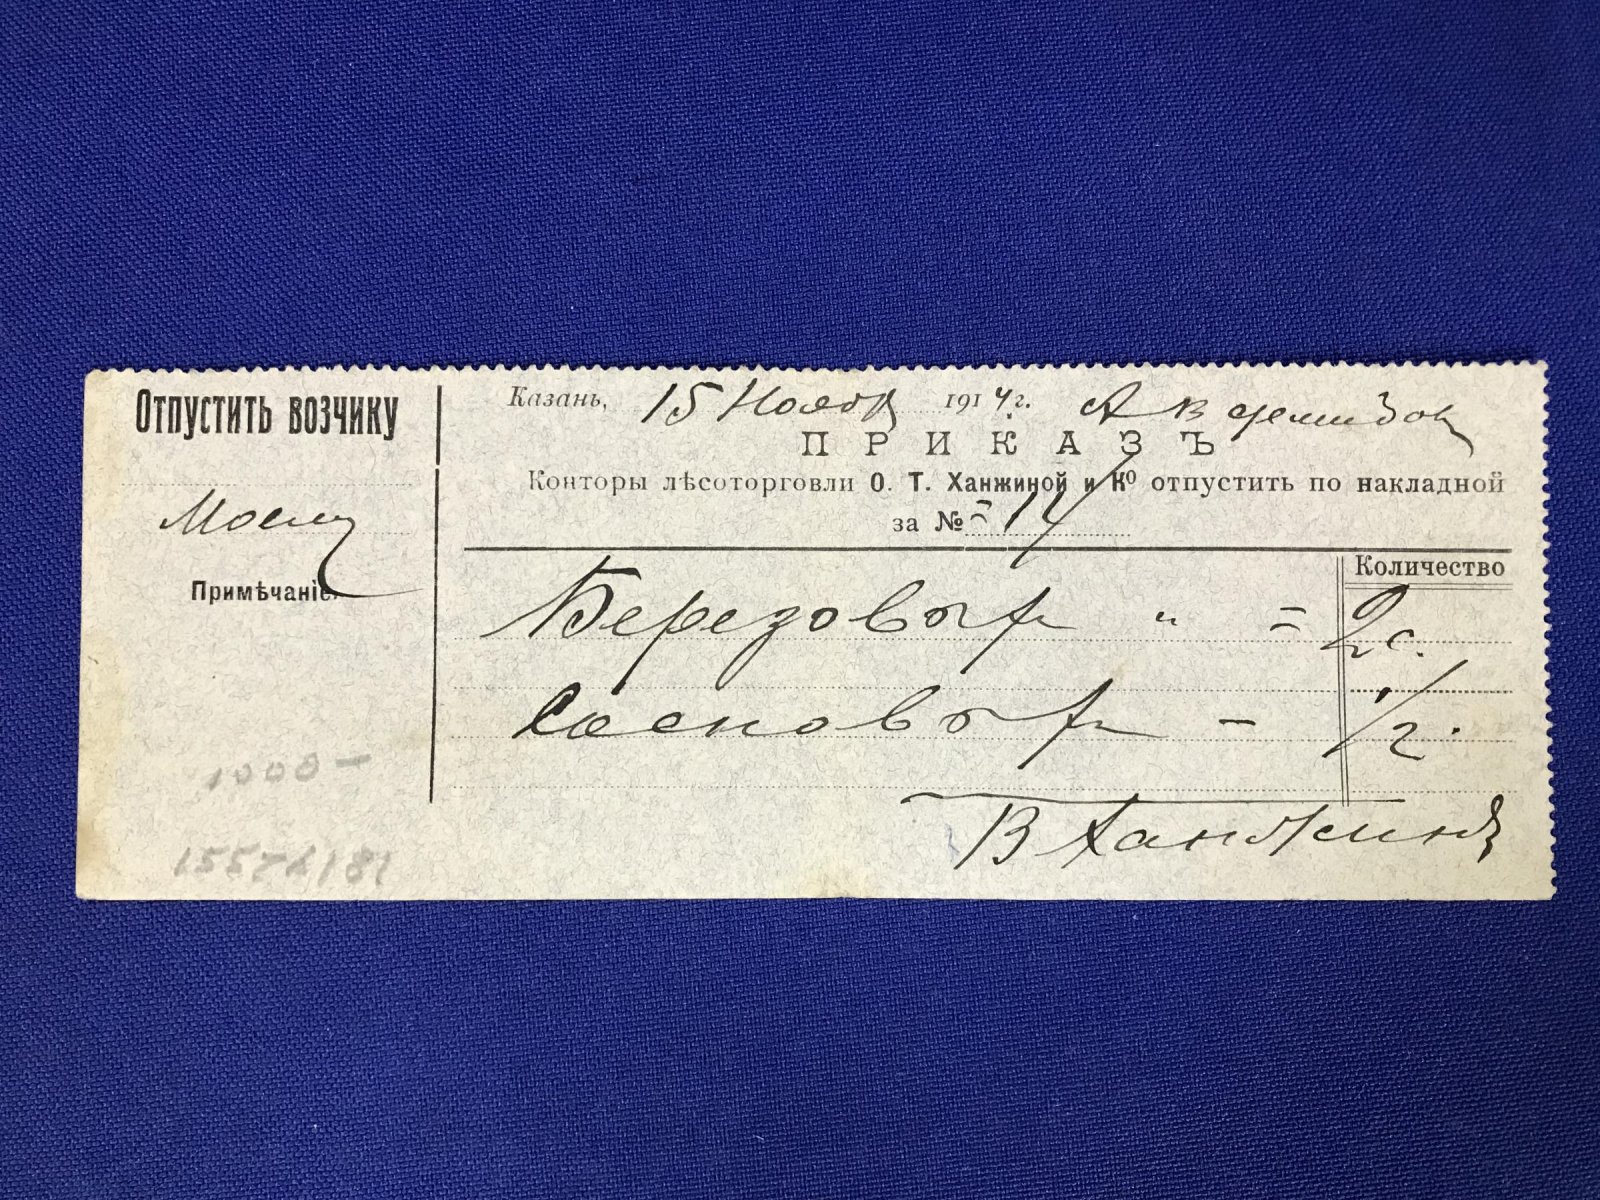 Отпустить возчику
Моему
Примѣчаніе.
1000 –
Казань, 15 Ноябр 1914 г.
ПРИКАЗЪ
Конторы лѣсоторговли О. Т. Ханжиной и Ко отпустить по накладной
за № 14
Количество
Березовых " = 2 с.
Сосновых – 1/2.
В Ханжинъ